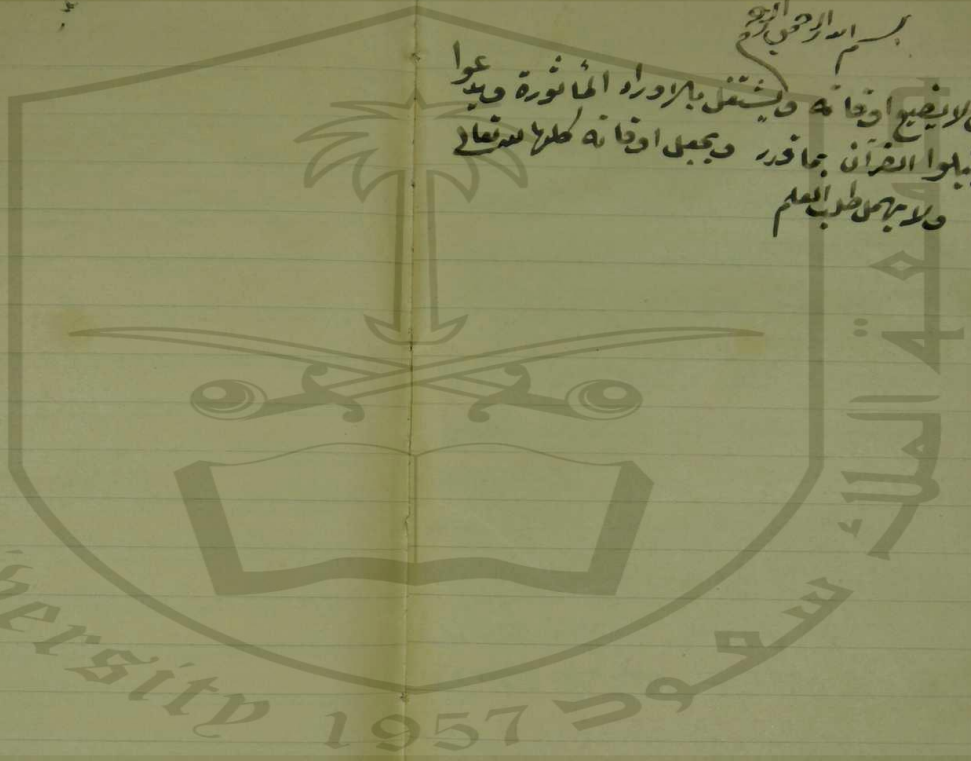 بسم الله الرحمن الرحيم
لا يضيع اوقاته ويشتغل بالاوراد المأثورة ويدعوا
يتلوا القرآن بما قدر ويجعل اوقاته كلها لله تعالى
ولا يهمل طلب العلم
جامعة الملك سعود
versity 1957